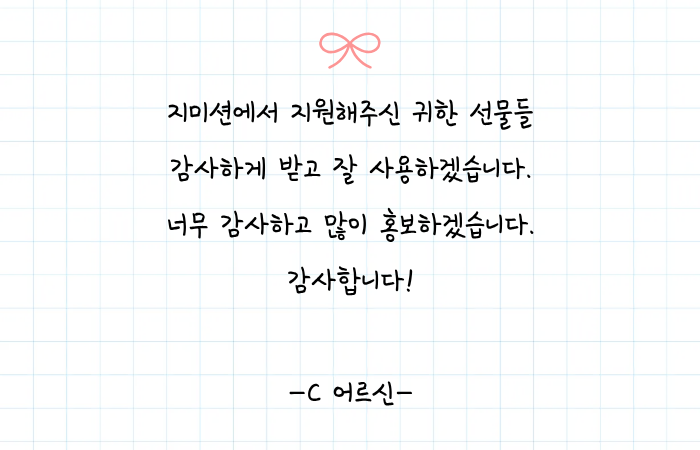 지미션에서 지원해주신 귀한 선물들
감사하게 받고 잘 사용하겠습니다.
너무 감사하고 많이 홍보하겠습니다.
감사합니다!
-C 어르신-